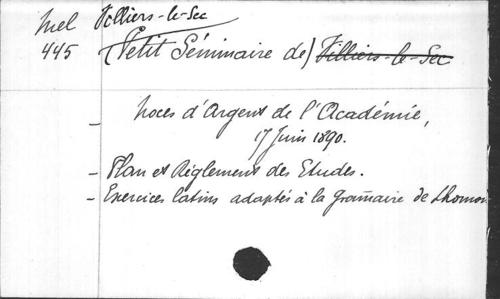 Mel Villiers-le-Sec
445 (Petit Séminaire de) Villiers-le-Sec
- Noces d'Argent de l'Académie,
17 Juin 1890.
- Plan et Règlement des Etudes.
- Exercices latins adaptés à la grammaire de Lhomon